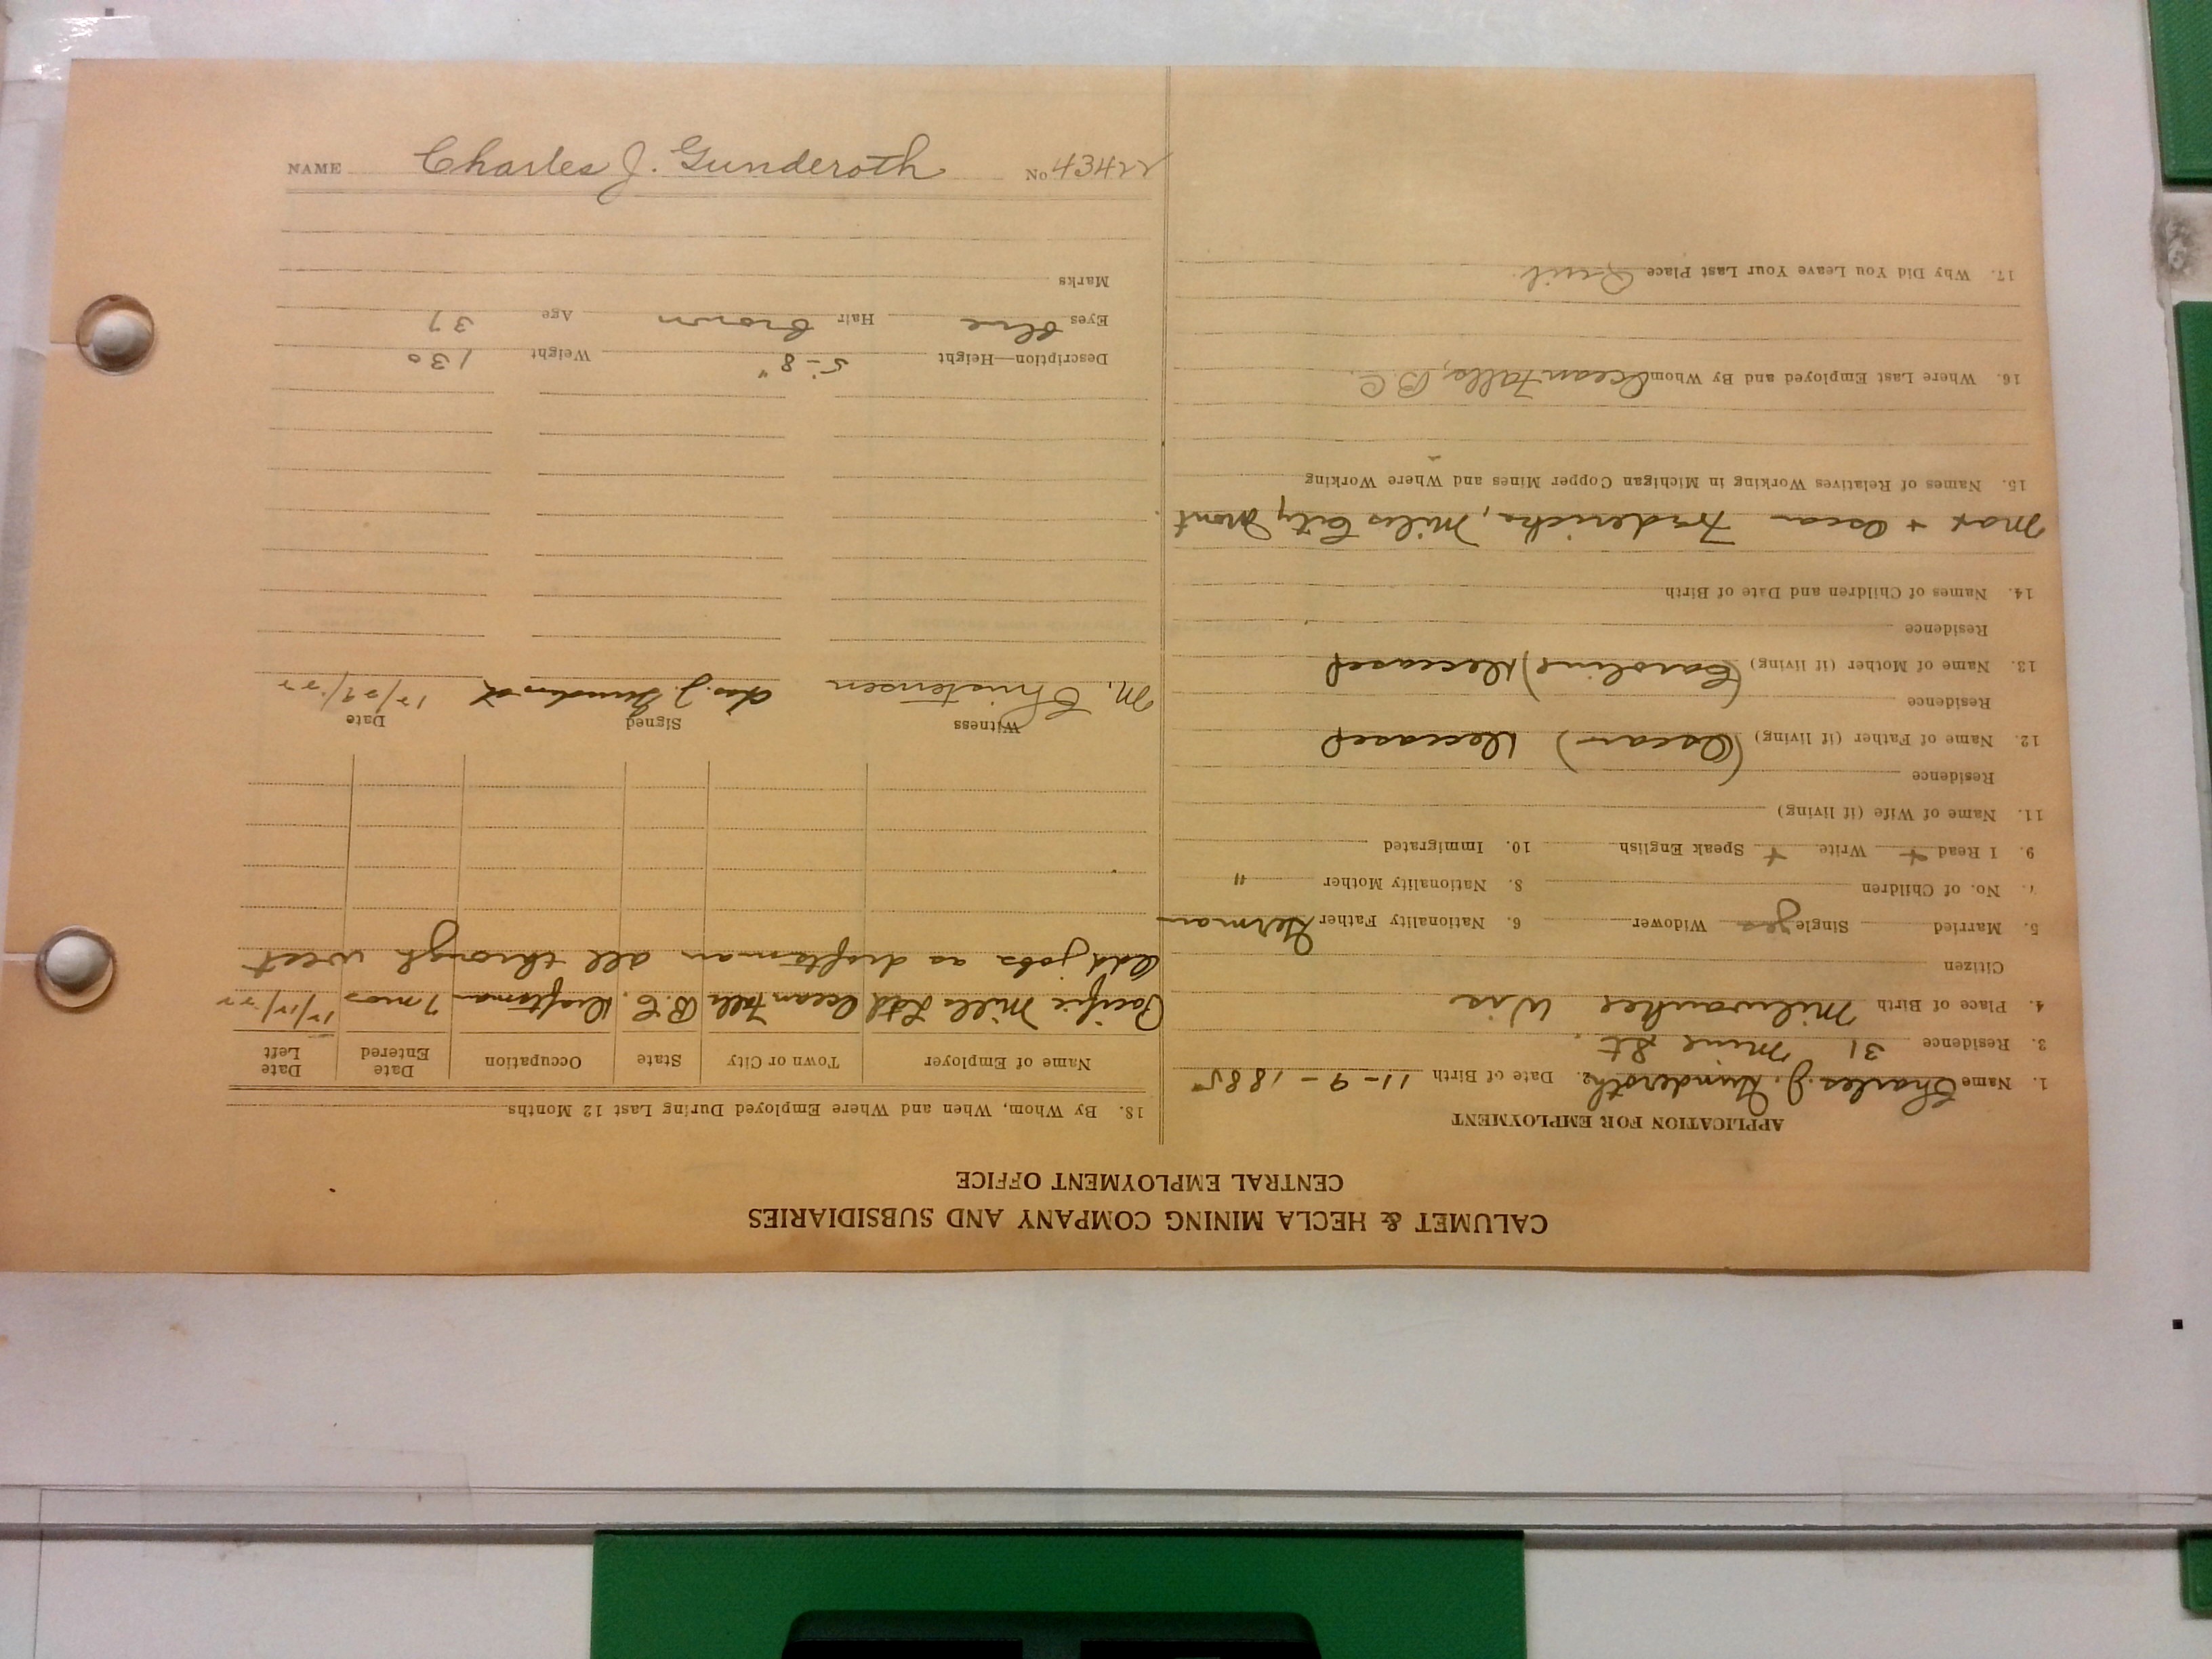 CALUMET & HECLA MINING COMPANY AND SUBSIDIARIES
CENTRAL EMPLOYMENT OFFICE
APPLICATION FOR EMPLOYMENT
1. Name Charles J. Gunderoth 2. Date of Birth 11-9-1885
3. Residence 31 Mine St.
4. Place of Birth Milwaukee Wis
Citizen
5. Married Single yes Widower 6. Nationality Father German
7. No. of Children 8. Nationality Mother "
9. I Read + Write + Speak English 10. Immigrated
11. Name of Wife (if living)
Residence
12. Name of Father (if living) (Oscar) Deceased
Residence
13. Name of Mother (if living) (Caroline) Deceased
Residence
14. Names of Children and Date of Birth
Max + Oscar Fredericks, Miles City Mont
15. Names of Relatives Working in Michigan Copper Mines and Where Working
16. Where Last Employed and By Whom Ocean Falls, B.C.
17. Why Did You Leave Your Last Place Quit
18. By Whom, When and Where Employed During Last 12 Months
Name of Employer Town or City State Occupation Date Entered Date Left
Pacific Mills Ltd Ocean Falls B.C. Draftsman 7 mos 12/12/22
Odd jobs as draftsman all through west
Witness Signed Date
M. Christensen Chas. J. Gunderoth 12/29/22
Description—Height 5'-8" Weight 130
Eyes blue Hair brown Age 37
Marks
NAME Charles J. Gunderoth No 43422